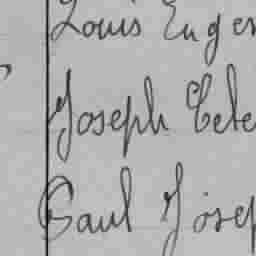 Louis Eugen
Joseph Cele
Paul Josep